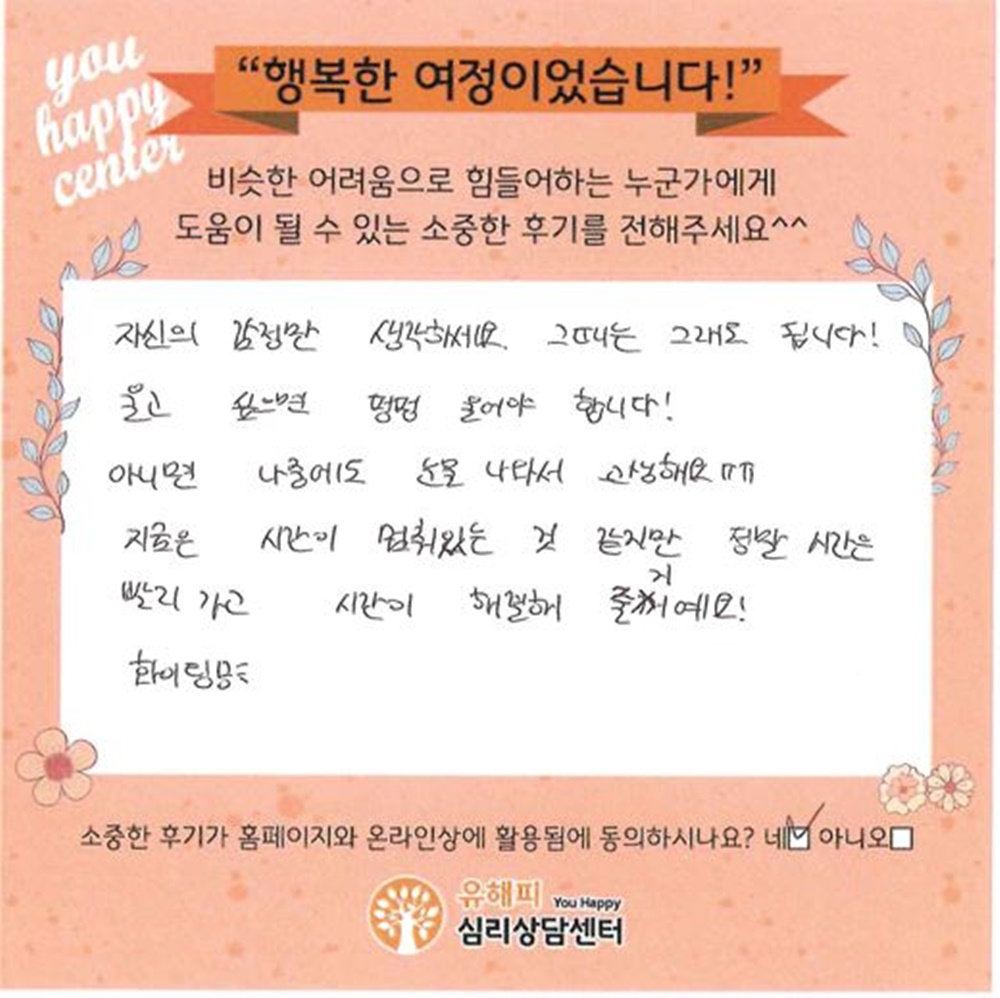 you
happy
center
“행복한 여정이었습니다!”
비슷한 어려움으로 힘들어하는 누군가에게
도움이 될 수 있는 소중한 후기를 전해주세요^^
자신의 감정만 생각하세요. 그때는 그래도 됩니다!
울고 싶으면 펑펑 울어야 합니다!
아니면 나중에도 눈물 나와서 고생해요ㅠㅠ
지금은 시간이 멈춰있는 것 같지만 정말 시간은
빨리 가고 시간이 해결해 줄거예요!
화이팅
소중한 후기가 홈페이지와 온라인상에 활용됨에 동의하시나요? 네 아니오
유해피 You Happy
심리상담센터